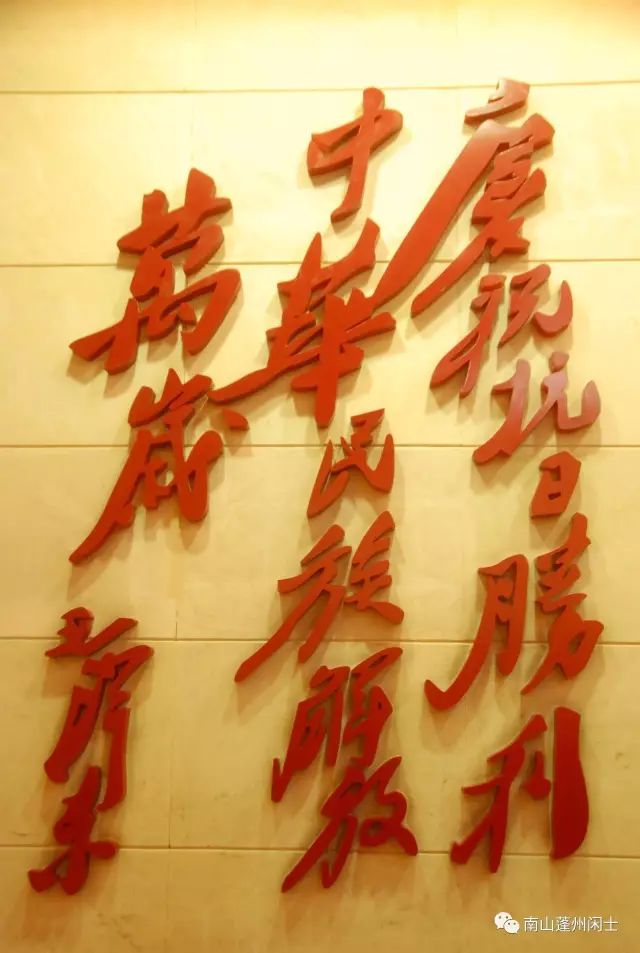 慶祝抗日勝利
中華民族解放
萬歲
毛澤東
南山蓬州闲士